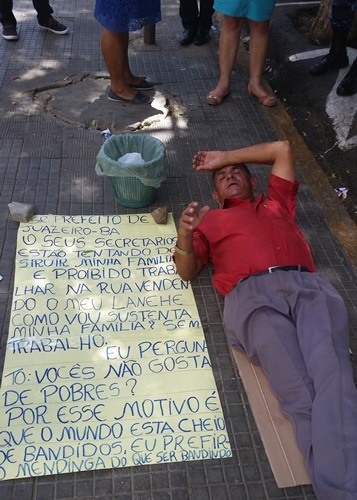 SR PREFEITO DE
JUAZEIRO-BA
O SEUS SECRETARIOS
ESTÃO TENTANDO DE
STRUIR MINHA FAMILIA
E PROIBIDO TRABA
LHAR NA RUA VENDEN
DO O MEU LANCHE
COMO VOU SUSTENTA
MINHA FAMILIA? SEM
TRABALHO.
EU PERGUN
TO: VOCÊS NÃO GOSTA
DE POBRES?
POR ESSE MOTIVO É
QUE O MUNDO ESTA CHEIO
DE BANDIDOS, EU PREFIR-
O MENDINGA DO QUE SER BANDINDO